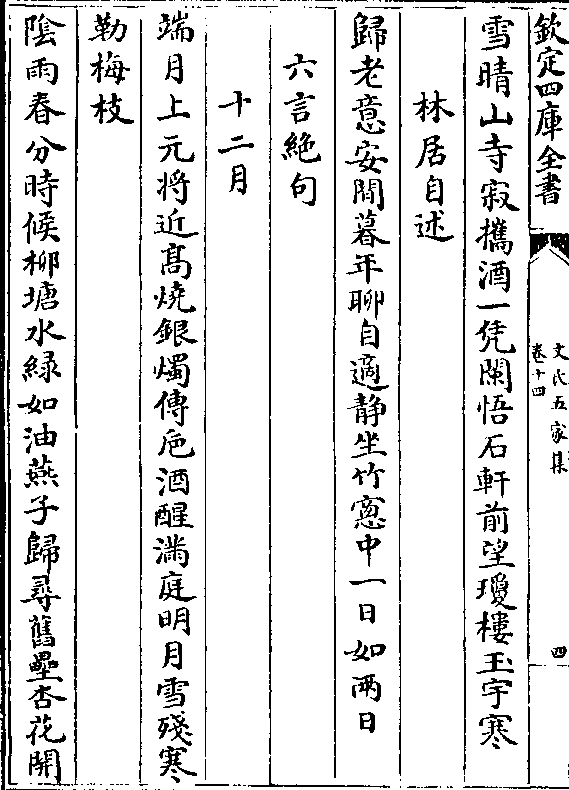 欽定四庫全書
文氏五家集
卷十四
四
雪晴山寺寂攜酒一凭闌悟石軒前望瓊樓玉宇寒
林居自述
歸老意安閒暮年聊自適静坐竹窻中一日如兩日
六言絶句
十二月
端月上元将近髙燒銀燭傳巵酒醒滿庭明月雪殘寒
勒梅枝
隂雨春分時候柳塘水緑如油燕子歸尋舊壘杏花開